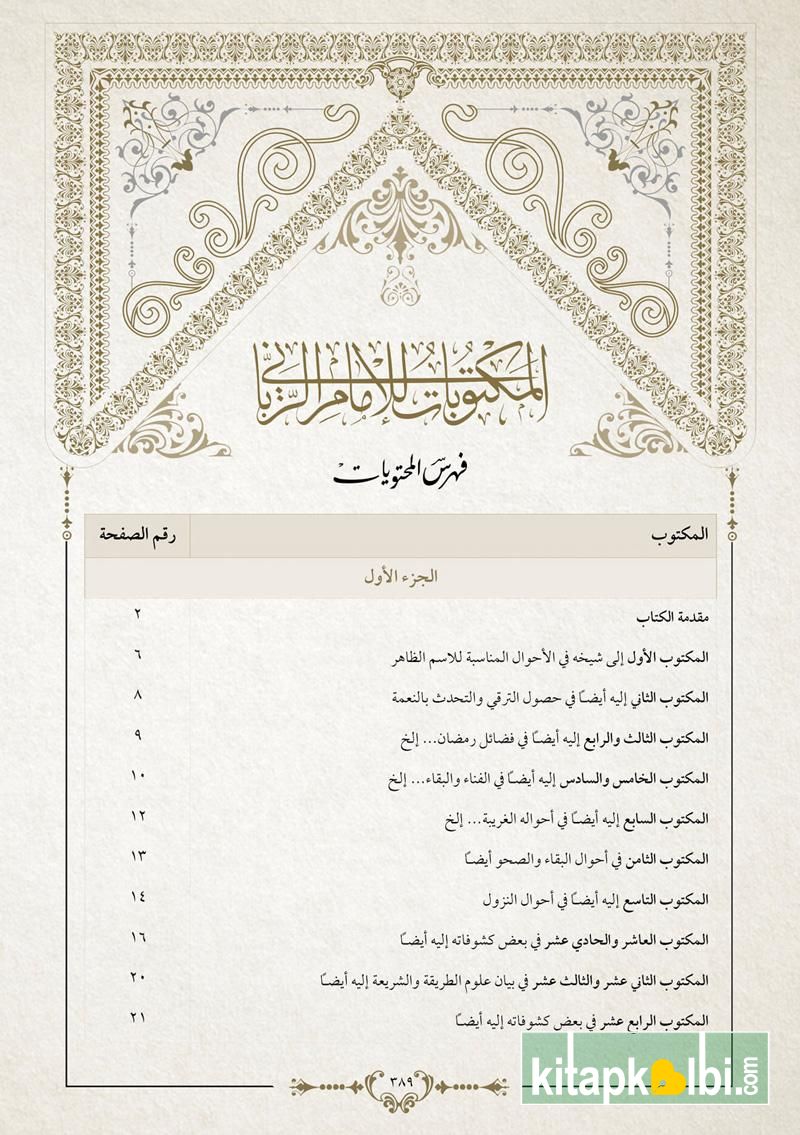 المكتوبات للإمام الرّبّاني
فهرس المحتويات
المكتوب رقم الصفحة
الجزء الأول
مقدمة الكتاب ٢
المكتوب الأول إلى شيخه في الأحوال المناسبة للاسم الظاهر ٦
المكتوب الثاني إليه أيضاً في حصول الترقي والتحدث بالنعمة ٨
المكتوب الثالث والرابع إليه أيضاً في فضائل رمضان... إلخ ٩
المكتوب الخامس والسادس إليه أيضاً في الفناء والبقاء... إلخ ١٠
المكتوب السابع إليه أيضاً في أحواله الغريبة... إلخ ١٢
المكتوب الثامن في أحوال البقاء والصحو أيضاً ١٣
المكتوب التاسع إليه أيضاً في أحوال النزول ١٤
المكتوب العاشر والحادي عشر في بعض كشوفاته إليه أيضاً ١٦
المكتوب الثاني عشر والثالث عشر في بيان علوم الطريقة والشريعة إليه أيضاً ٢٠
المكتوب الرابع عشر في بعض كشوفاته إليه أيضاً ٢١
٣٨٩
kitapkalbi.com